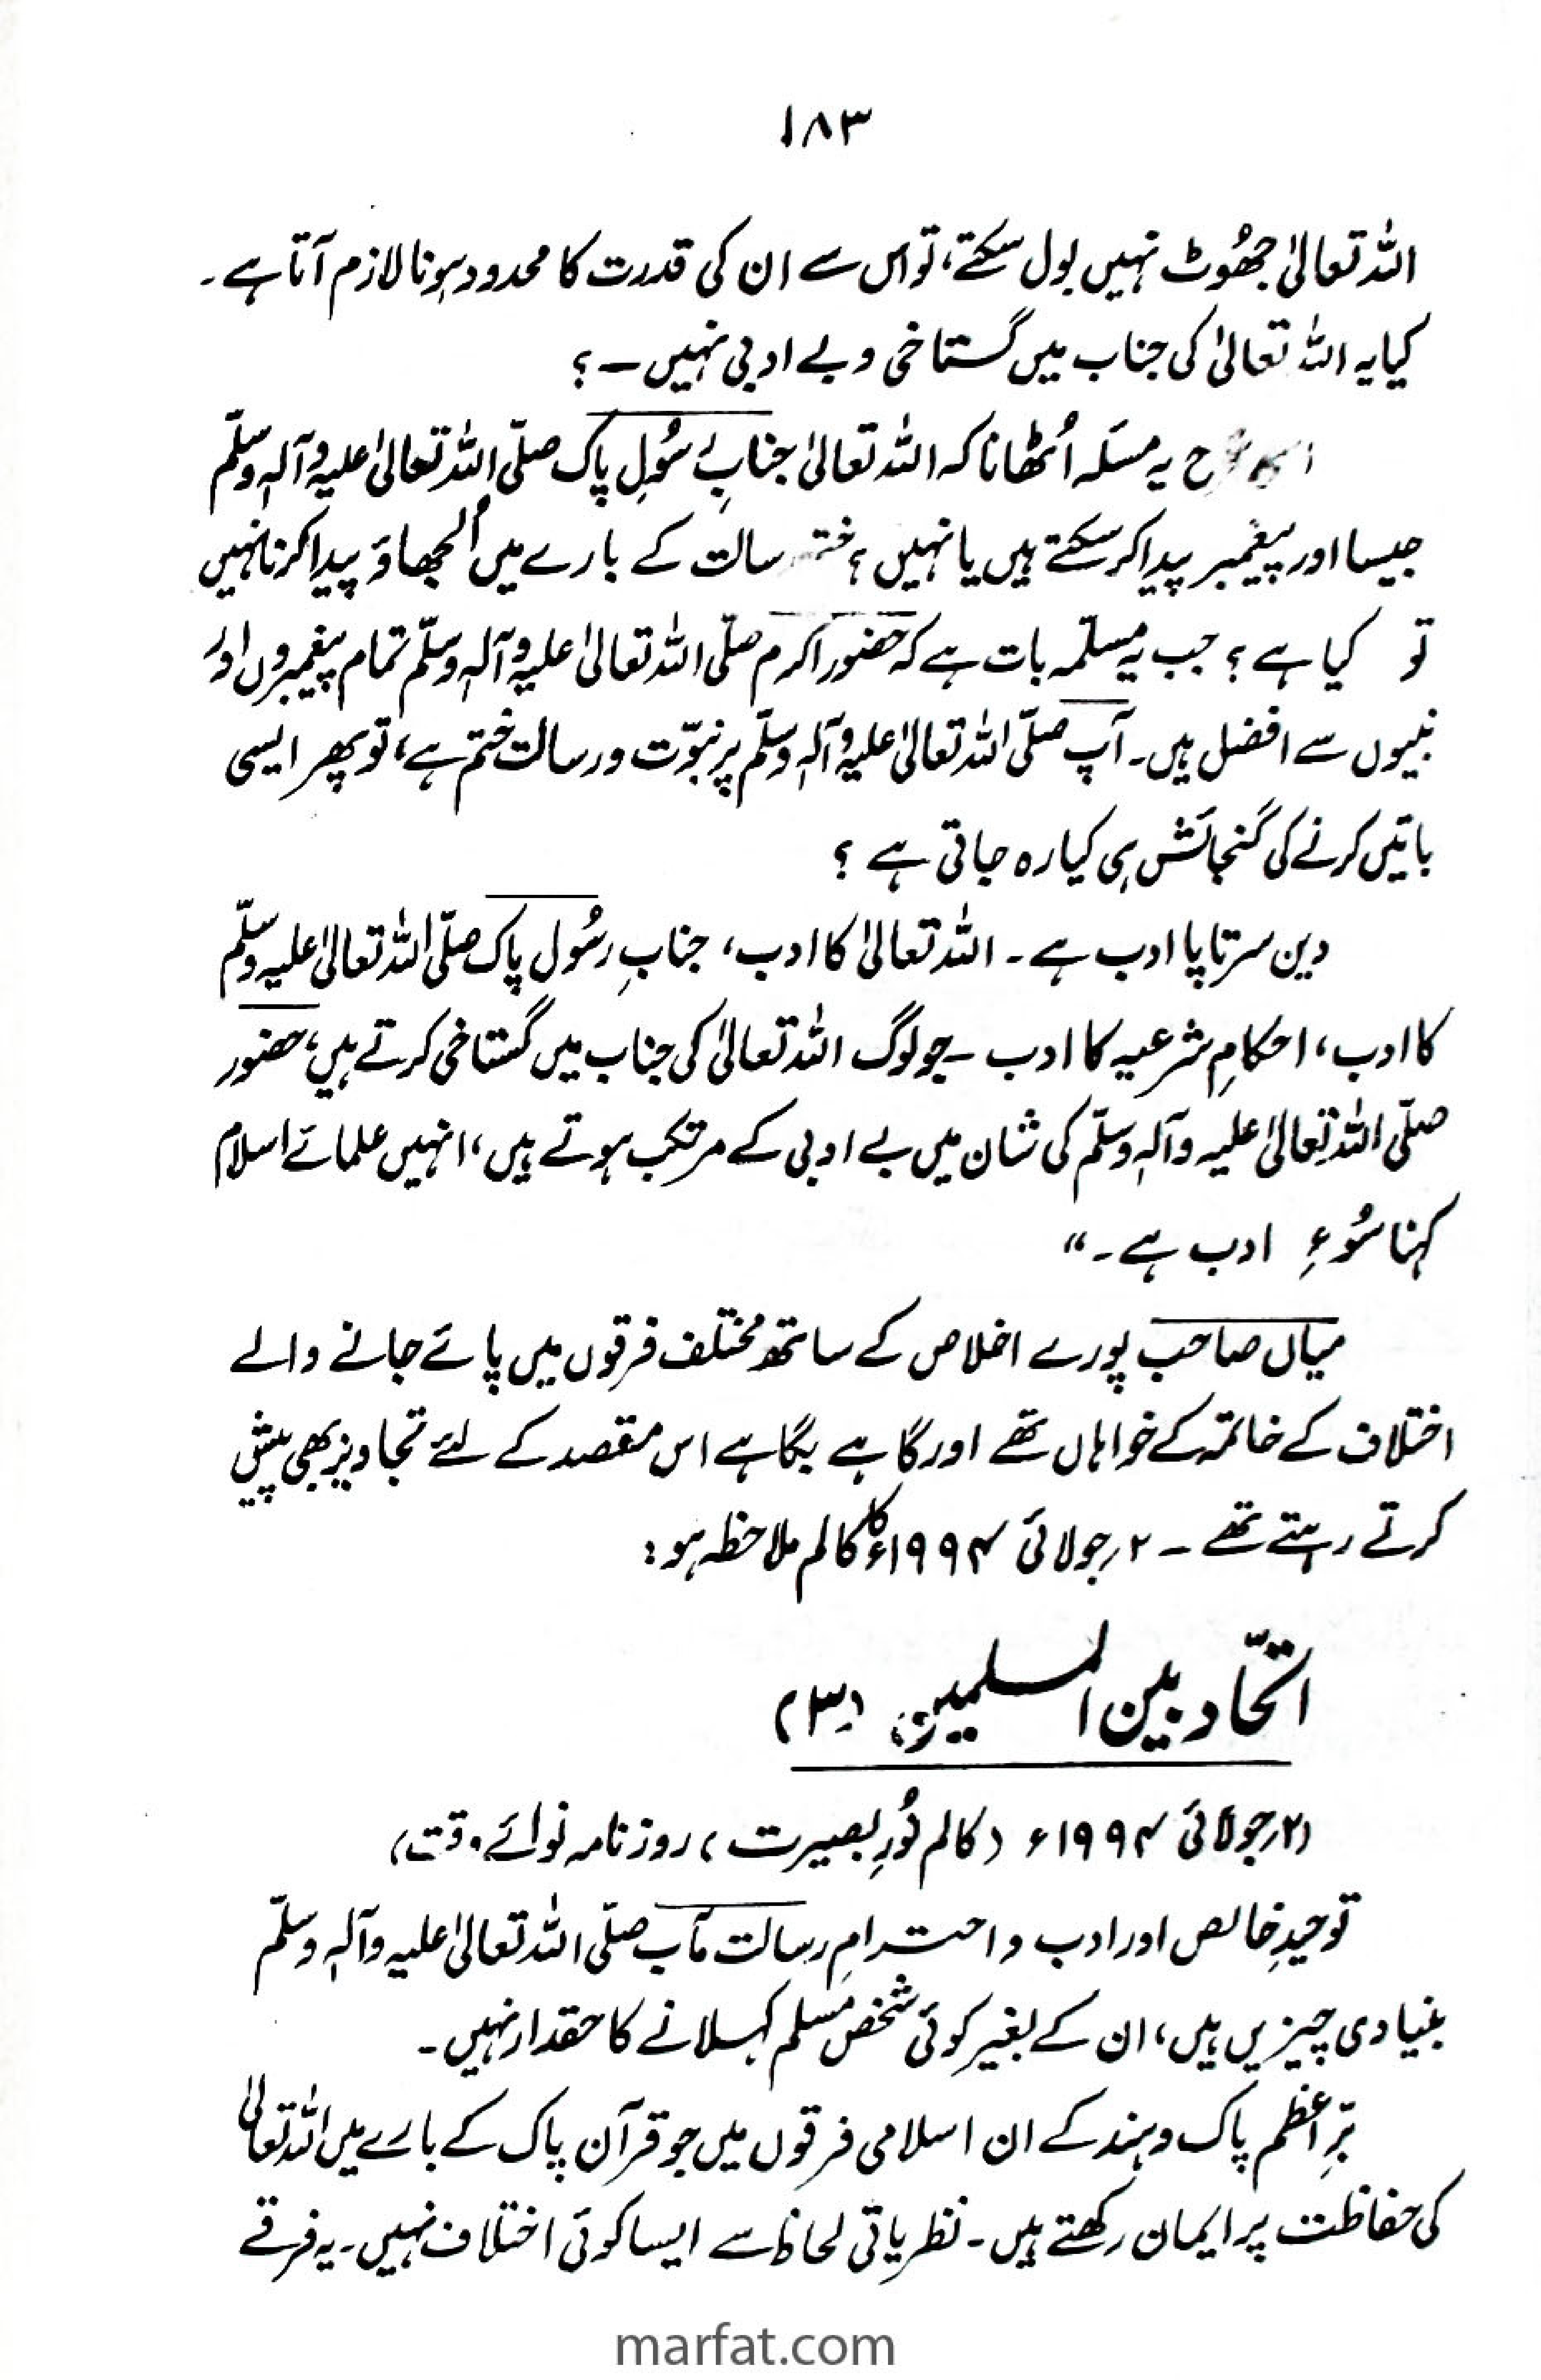 ۱۸۳
اللہ تعالیٰ جھُوٹ نہیں بول سکتے، تو اس سے ان کی قدرت کا محدود ہونا لازم آتا ہے۔
کیا یہ اللہ تعالیٰ کی جناب میں گستاخی و بے ادبی نہیں ۔ ؟
یہ مسئلہ اُٹھانا کہ اللہ تعالیٰ جنابِ رسُولِ پاک صلّی اللہ تعالیٰ علیہ وآلہٖ وسلّم
جیسا اور پیغمبر پیدا کر سکتے ہیں یا نہیں؟ ختم رسالت کے بارے میں اُلجھاؤ پیدا کرنا نہیں
تو کیا ہے؟ جب یہ مسلّمہ بات ہے کہ حضور اکرم صلّی اللہ تعالیٰ علیہ وآلہٖ وسلّم تمام پیغمبروں اور
نبیوں سے افضل ہیں۔ آپ صلّی اللہ تعالیٰ علیہ وآلہٖ وسلّم پر نبوّت و رسالت ختم ہے، تو پھر ایسی
باتیں کرنے کی گنجائش ہی کیا رہ جاتی ہے ؟
دین سرتاپا ادب ہے۔ اللہ تعالیٰ کا ادب، جنابِ رسُول پاک صلّی اللہ تعالیٰ علیہ وسلّم
کا ادب، احکامِ شرعیہ کا ادب ۔ جو لوگ اللہ تعالیٰ کی جناب میں گستاخی کرتے ہیں، حضور
صلّی اللہ تعالیٰ علیہ وآلہٖ وسلّم کی شان میں بے ادبی کے مرتکب ہوتے ہیں، انہیں علمائے اسلام
کہنا سُوءِ ادب ہے۔“
میاں صاحب پورے اخلاص کے ساتھ مختلف فرقوں میں پائے جانے والے
اختلاف کے خاتمہ کے خواہاں تھے اور گاہے بگاہے اس مقصد کے لئے تجاویز بھی پیش
کرتے رہتے تھے ۔ ۲؍جولائی ۱۹۹۴ء کا کالم ملاحظہ ہو :
اتّحاد بین المسلمین (۳)
(۲؍جولائی ۱۹۹۴ء (کالم نُورِ بصیرت) روزنامہ نوائے وقت)
توحیدِ خالص اور ادب و احترامِ رسالت مآب صلّی اللہ تعالیٰ علیہ وآلہٖ وسلّم
بنیادی چیزیں ہیں، ان کے بغیر کوئی شخص مُسلم کہلانے کا حقدار نہیں۔
برِّاعظم پاک و ہند کے ان اسلامی فرقوں میں جو قرآن پاک کے بارے میں اللہ تعالیٰ
کی حفاظت پر ایمان رکھتے ہیں۔ نظریاتی لحاظ سے ایسا کوئی اختلاف نہیں۔ یہ فرقے
marfat.com